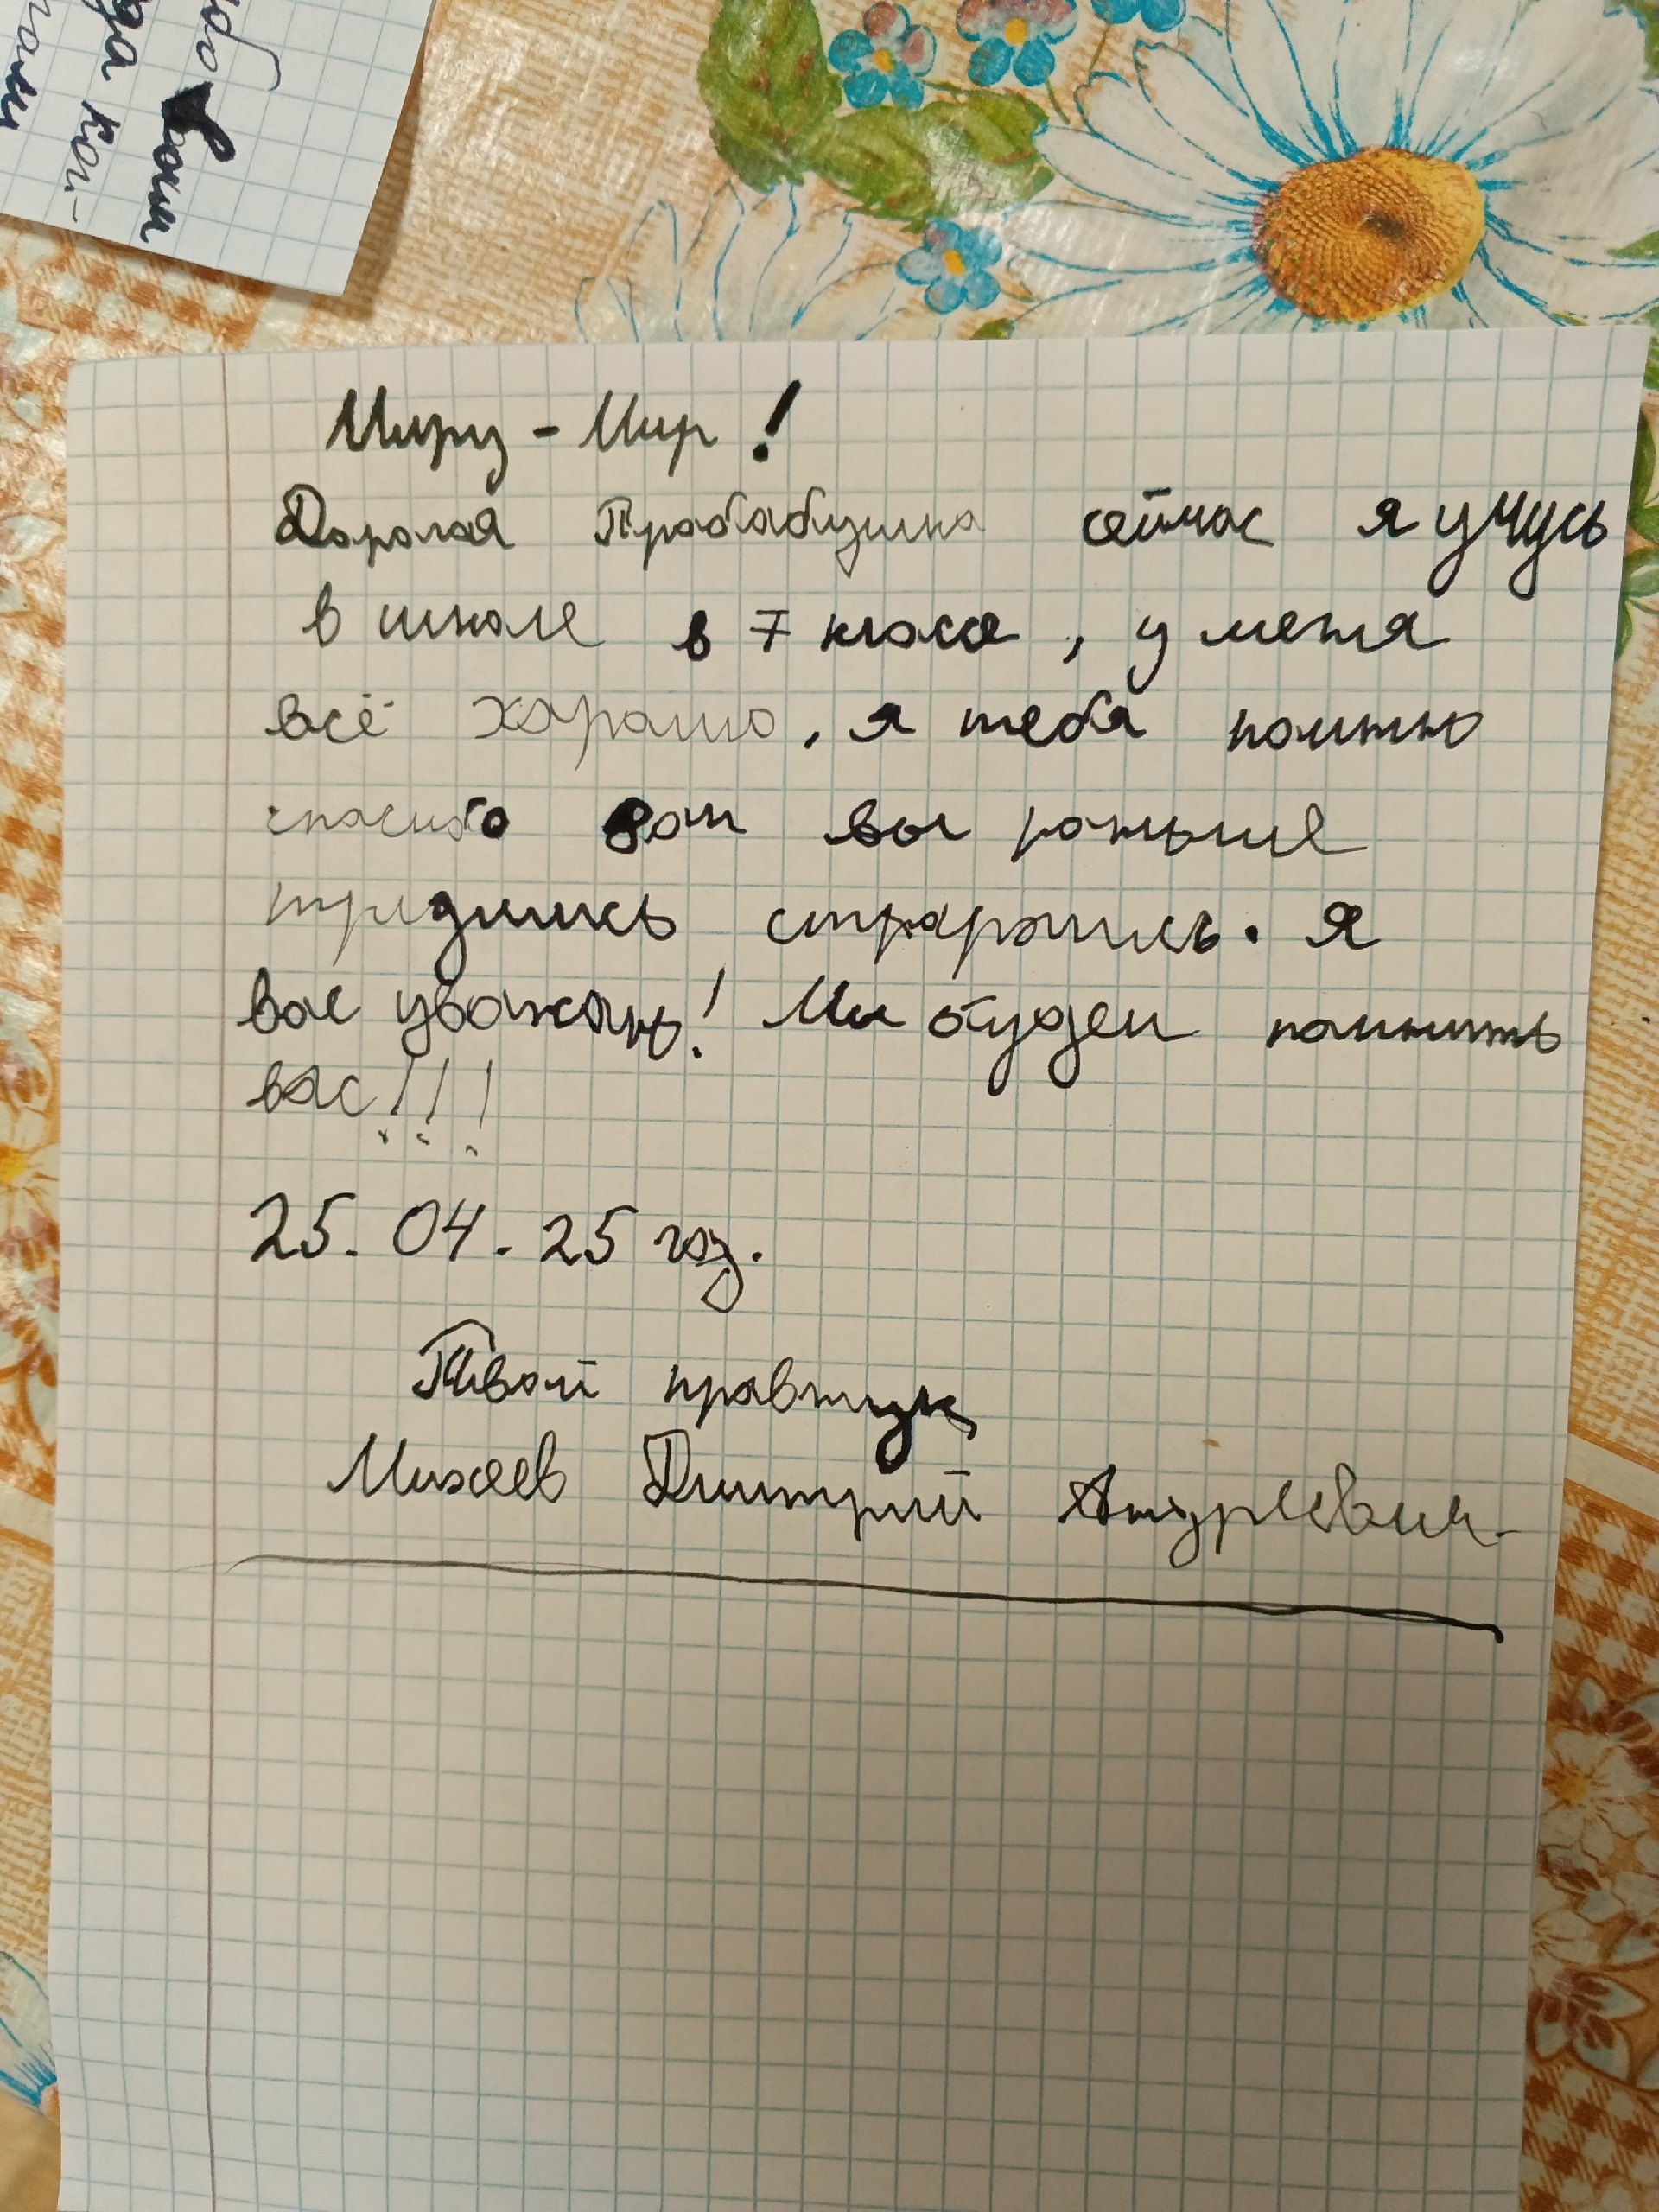 Миру - Мир!
Дорогая Прабабушка сейчас я учусь
в школе в 7 класе, у меня
всё хорошо, я тебя помню
спасибо вам вы раньше
трудились старались. я
вас уважаю! Мы будем помнить
вас!!!
25.04.25 год.
Твой правнук
Михеев Дмитрий Андреевич.